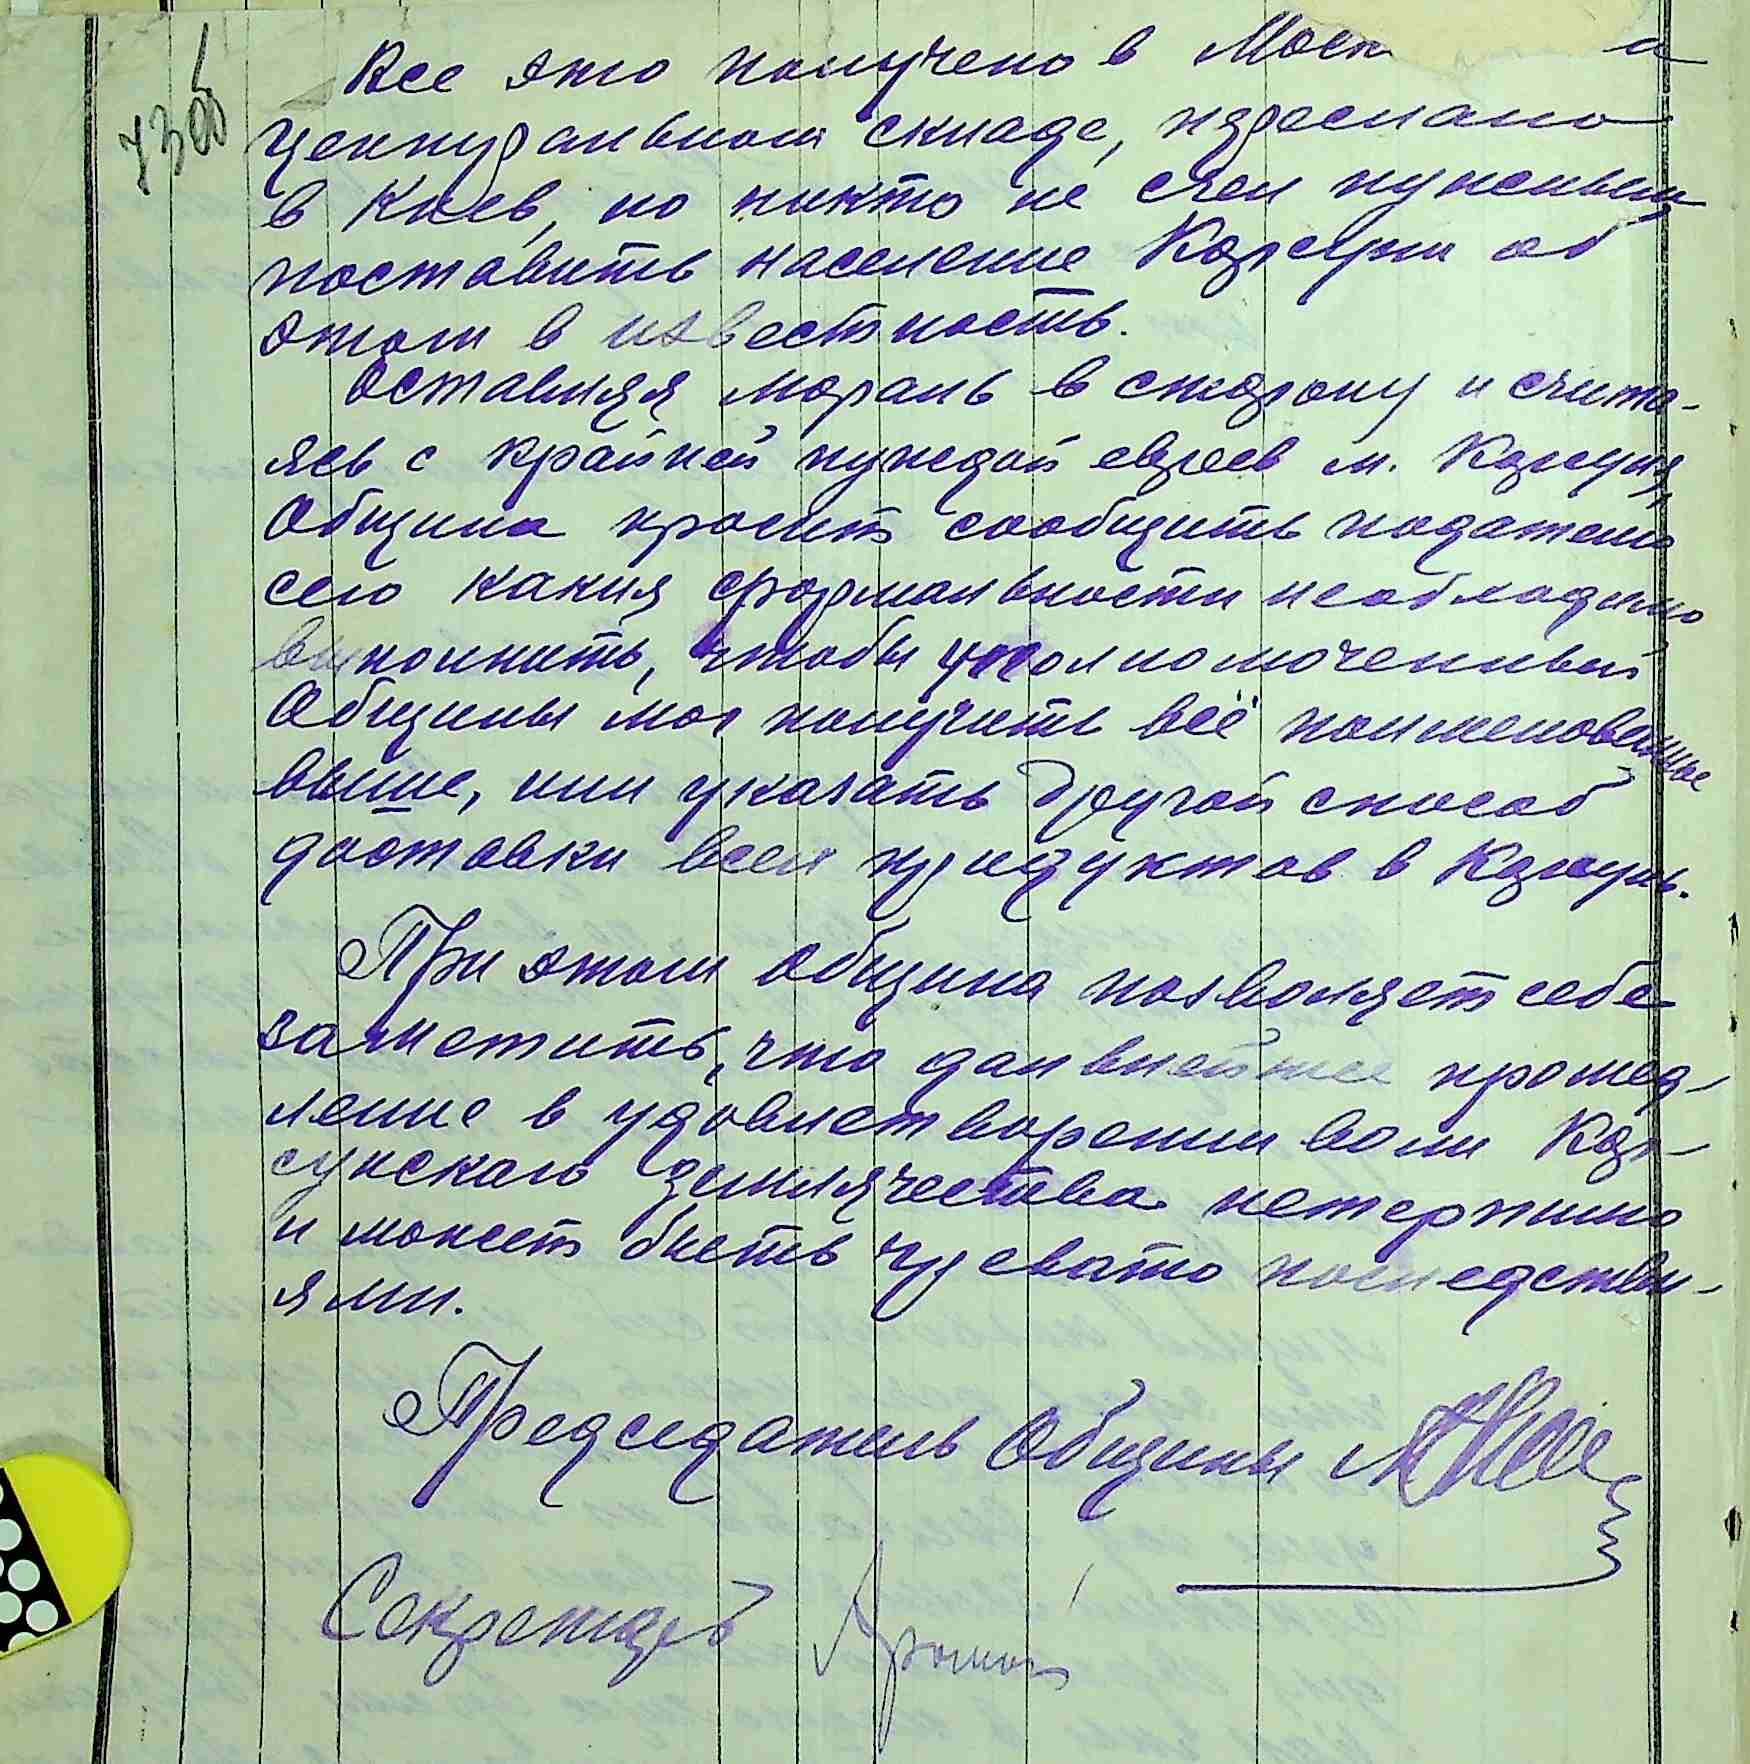 73об
Все это получено в Моск а
центральном складе, переслано
в Киев, но никто не счел нужным
поставить население Корсуни об
этом в известность.
Оставляя мораль в сторону и счита-
ясь с крайней нуждой евреев м. Корсуня,
Община просит сообщить подателю
сего какия формальности необходимо
выполнить, чтобы уполномоченный
Общины мог получить всё поименованные
выше, или указать другой способ
доставки всех продуктов в Корсунь.
При этом община позволяет себе
заметить, что дальнейшее промед-
ление в удовлетворении воли Кор-
сунского землячества нетерпимо
и может быть чревато последстви-
ями.
Председатель Общины
Секретарь